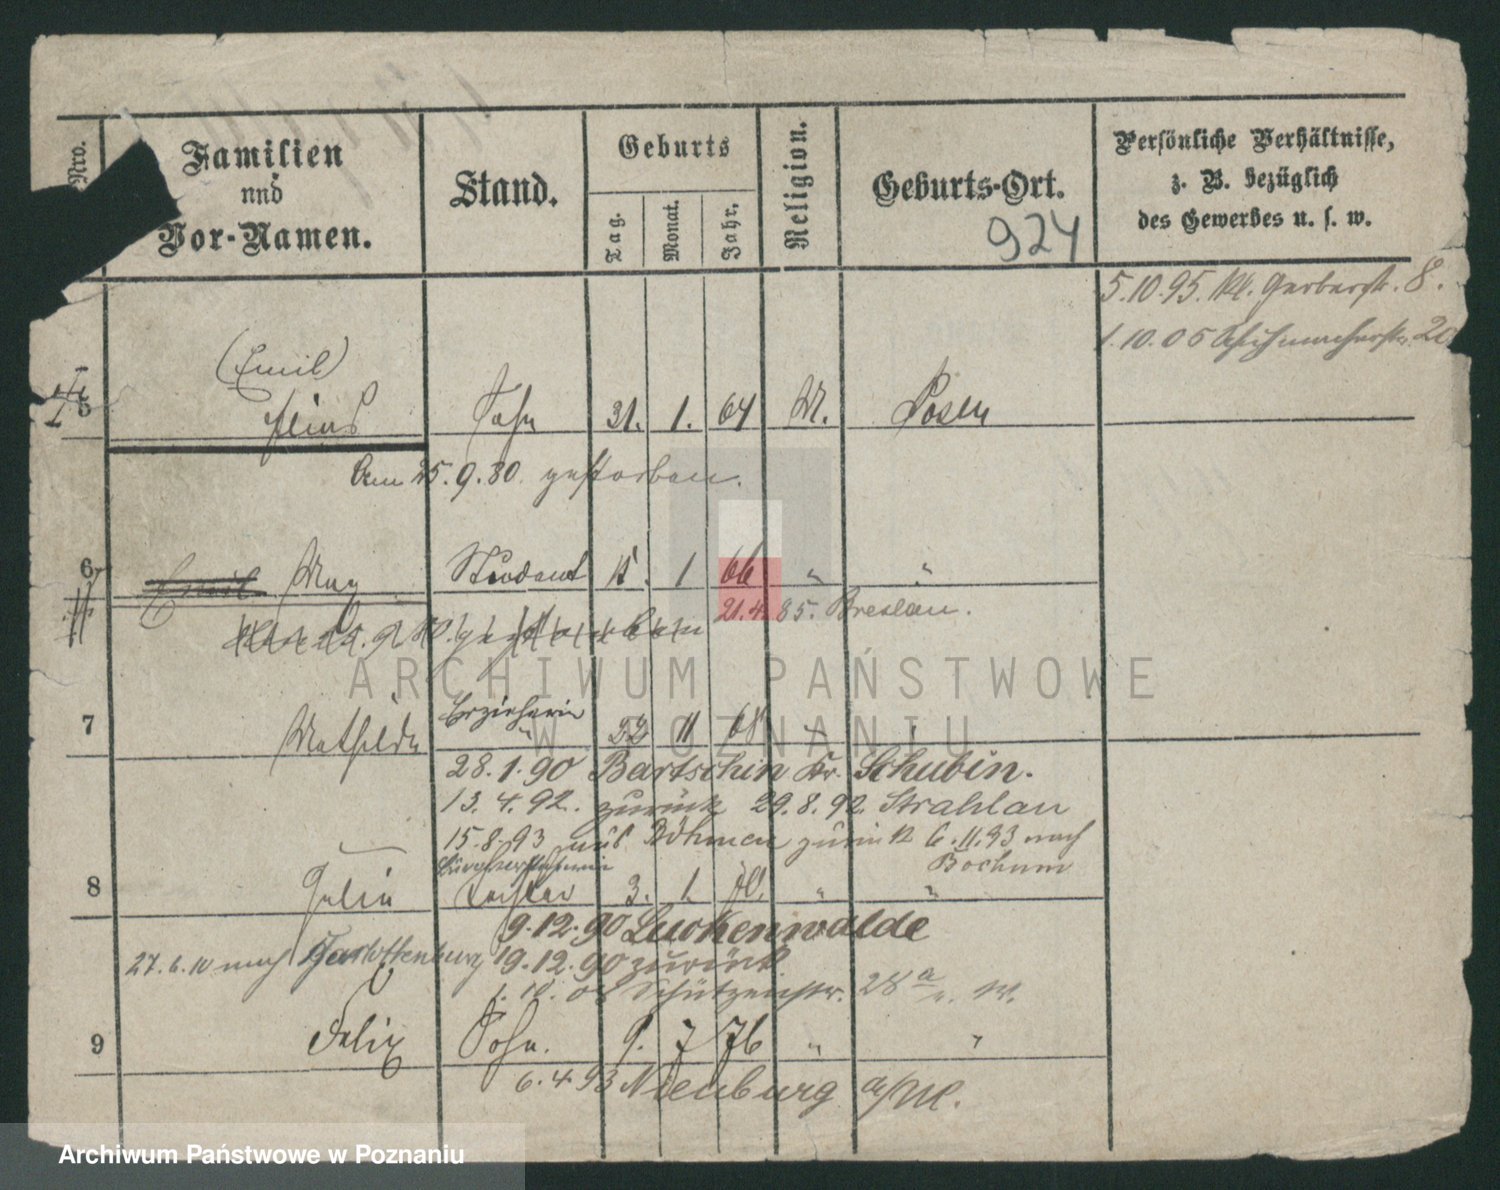 Nro.
Familien
und
Vor-Namen.
Stand.
Geburts
Tag.
Monat.
Jahr.
Religion.
Geburts-Ort.
924
Persönliche Verhältnisse,
z. B. bezüglich
des Gewerbes u. s. w.
5.10.95. Kl. Gerberstr. 8.
1.10.05 Schuhmacherstr. 20
(Emil)
5 Sohn 31. 1. 64 M. Posen
Am 25.9.80. gestorben.
6 Emil Max Student 15. 1 66 " "
21.4.85. Breslau.
gestorben
7 Mathilde Erzieherin 11 68 "
28.1.90 Bartschin Kr. Schubin.
13.4.92. zurück 29.8.92. Strahlau
15.8.93 aus Böhmen zurück 6.11.93 nach
Bochum
8 Julie Tochter 3. 1. " "
9.12.90 Luckenwalde
27.6.10 nach Charlottenburg 19.12.90 zurück
Schützenstr. 28a
9 Felix Sohn. 9. 7 76 " "
6.4.93 Nienburg
ARCHIWUM PAŃSTWOWE
W POZNANIU
Archiwum Państwowe w Poznaniu